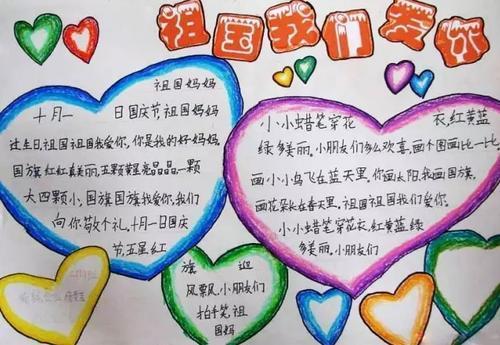 祖国我们爱你
祖国妈妈
十月一 日国庆节,祖国妈妈
过生日,祖国祖国我爱你,你是我的好妈妈,
国旗红红真美丽,五颗黄星亮晶晶,一颗
大四颗小,国旗国旗我爱你,我们
向你敬个礼,十月一日国庆
节,五星红
小小蜡笔穿花 衣,红黄蓝
绿多美丽,小朋友们多么欢喜,画个图画比一比,
画小小鸟飞在蓝天里,你画太阳,我画国旗,
画花朵长在春天里,祖国祖国我们爱你。
小小蜡笔穿花衣,红黄蓝绿
多美丽,小朋友们
旗 迎
风飘,小朋友们
拍手笑,祖
国妈